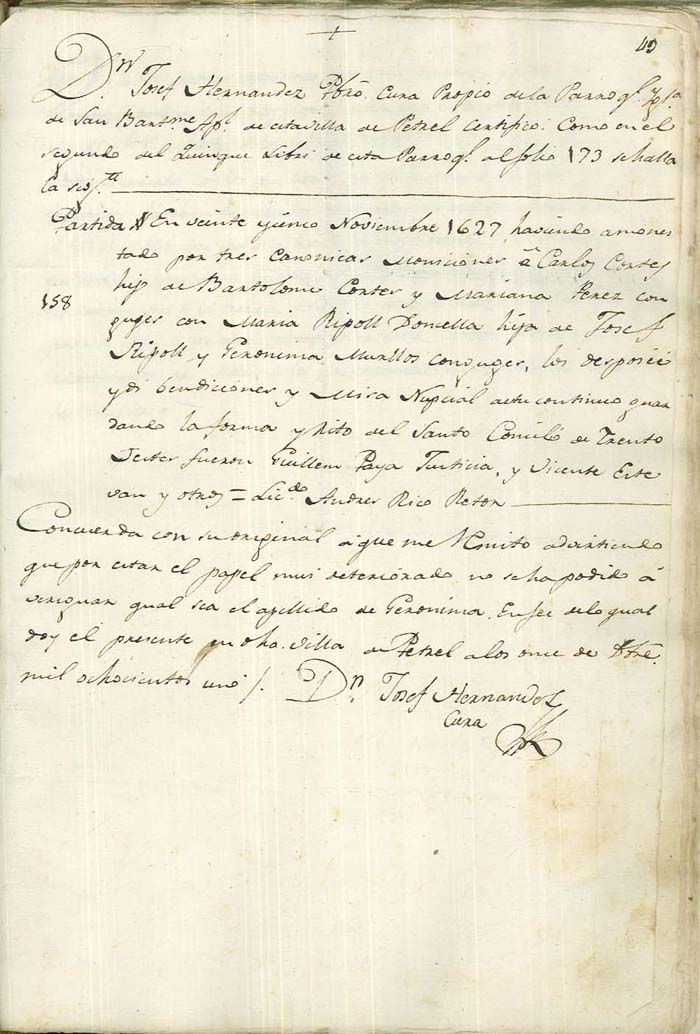 +
49
Dn. Josef Hernandez Pbro. Cura Propio de la Parroql. Ygla
de San Bartme. Apl. de esta villa de Petrel Certifico: Como en el
segundo del Quinque Libri de esta Parroql. al folio 173 se halla
la sigte.
Partida # En veinte y sinco Noviembre 1627, haviendo amones
tado por tres canonicas Monisiones â Carlos Cortes
158
hijo de Bartolome Cortes y Mariana Perez con
juges con Maria Ripoll Donsella hija de Josef
Ripoll y Geronima Murllos conjuges, los desposé è
y di bendiciones y Misa Nupcial actu continuo guar
dando la forma y Rito del Santo Concilio de Trento
Testes fueron Guillem Paya Justicia, y Vicente Este
van y otros = Licdo. Andres Rico Retor
Concuerda con su original â que me Remito advirtiendo
que por estar el papel mui deteriorado no se ha podido â
veriguar qual sea el apellido de Geronima. En fee de lo qual
doy el presente en dha. villa de Petrel a los once de
mil ochocientos uno /. Dn. Josef Hernandez
Cura